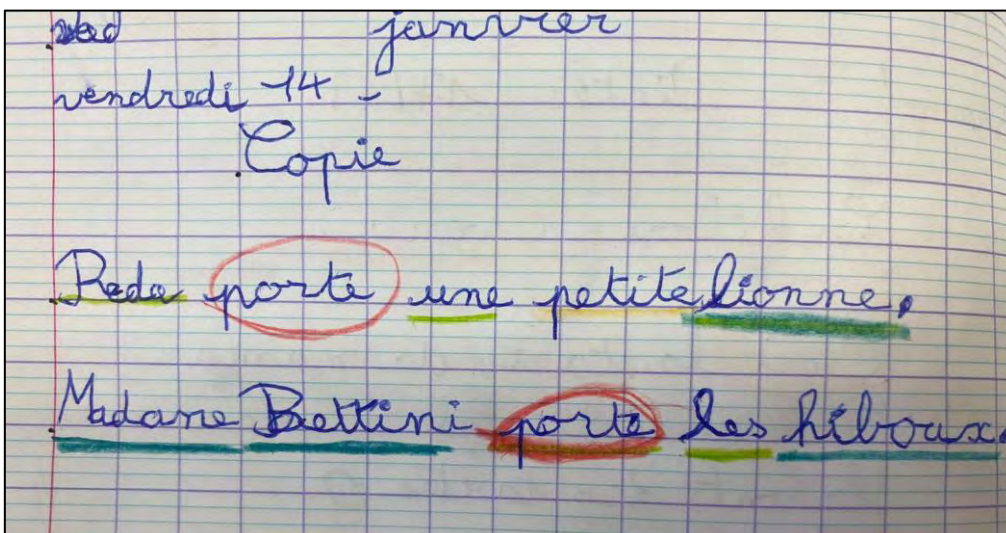 janvier
vendredi 14 -
Copie
Reda porte une petite lionne.
Madame Bettini porte les hiboux.